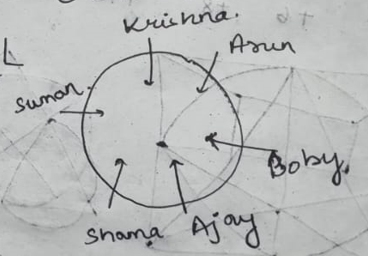 Krishna.
Arun
Suman.
Boby.
Shama
Ajay